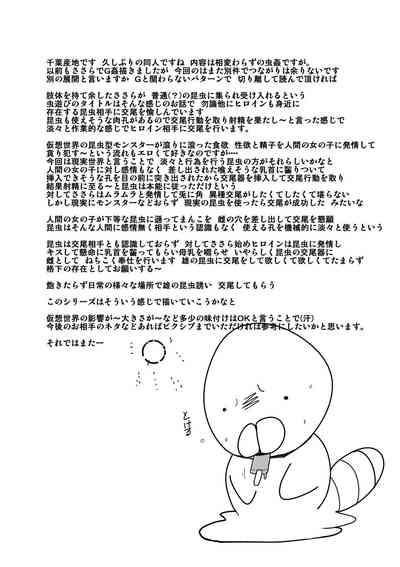 千葉産地です 久しぶりの同人ですね 内容は相変わらずの虫姦ですが。
以前もささらでG姦描きましたが 今回のはまた別件でつながりは余りないです
別の展開と言いますか Gと関わらないパターンで 切り離して読んで頂ければ
肢体を持て余したささらが 普通(?)の昆虫に集られ受け入れるという
虫遊びのタイトルはそんな感じのお話で 勿論他ヒロインも身近に
存在する昆虫相手に交尾を愉しんでいます
昆虫も使えそうな肉孔があるので交尾行動を取り射精を果たし～と言った感じで
淡々と作業的な感じでヒロイン相手に交尾を行います。
仮想世界の昆虫型モンスターが滾りに滾った食欲 性欲と精子を人間の女の子に発情して
貪り犯す～という流れもエロくて好きなのですが････
今回は現実世界と言うことで 淡々と行為を行う昆虫の方がそれらしいかなと
人間の女の子に対し感情もなく 差し出された喰えそうな乳首に齧りついて
挿入できそうな孔を目の前に突き出されたから交尾器を挿入して交尾行動を取り
結果射精に至る～と昆虫は本能に従っただけという
対してささらはムラムラと発情して兎に角 異種交尾がしたくてしたくて堪らない
しかし現実にモンスターなどおらず 現実の昆虫を使ったら交尾が成功した みたいな
人間の女の子が下等な昆虫に謙ってまんこを 雌の穴を差し出して交尾を懇願
昆虫はそんな人間に感情無く相手という認識もなく 使える孔を機械的に淡々と使うという
昆虫は交尾相手とも認識しておらず 対してささら始めヒロインは昆虫に発情し
キスして懸命に乳首を齧ってもらい母乳を啜らせ いやらしく昆虫の交尾器に
雌として ねちこく奉仕を行います 雄の昆虫に交尾をして欲しくて欲しくてたまらず
格下の存在としてお願いする～
飽きたらず日常の様々な場所で雄の昆虫誘い 交尾してもらう
このシリーズはそういう感じで描いていこうかなと
仮想世界の影響が～大きさが～など多少の味付けはOKと言うことで(汗)
今後のお相手のネタなどあればピクシブまでいただければ参考にしたいかと思います。
それではまたー
とける